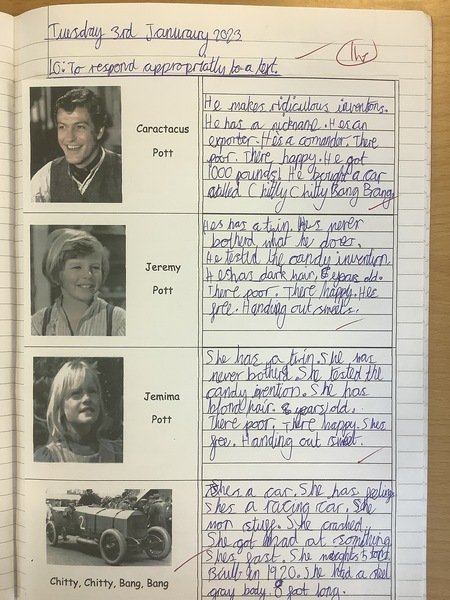 Tuesday 3rd Janurary 2023
LO: To respond appropriatly to a text.
Caractacus
Pott
He makes ridiculous inventons.
He has a nickname. Hes an
exporter. Hes a comander. There
poor. There happy. He got
1000 pounds! He bought a car
called Chitty Chitty Bang Brang
Jeremy
Pott
Hes has a twin. He is never
botherd what he does.
He testid the candy invention.
He has dark hair, 8 years old.
There poor. There happy. Hes
free. Handing out sweets.
Jemima
Pott
She has a twin. She was
never botherd. She tested the
candy invention. She has
blond hair. 8 years old.
There poor. There happy. Shes
free. Handing out sweet.
Chitty, Chitty, Bang, Bang
2
Shes a car. She has feelings
shes a racing car. She
won stuff. She crashed.
She got mad at something
Shes fast. She weights 5 tons,
Built in 1920. She had a steel
gray body. 8 foot long.